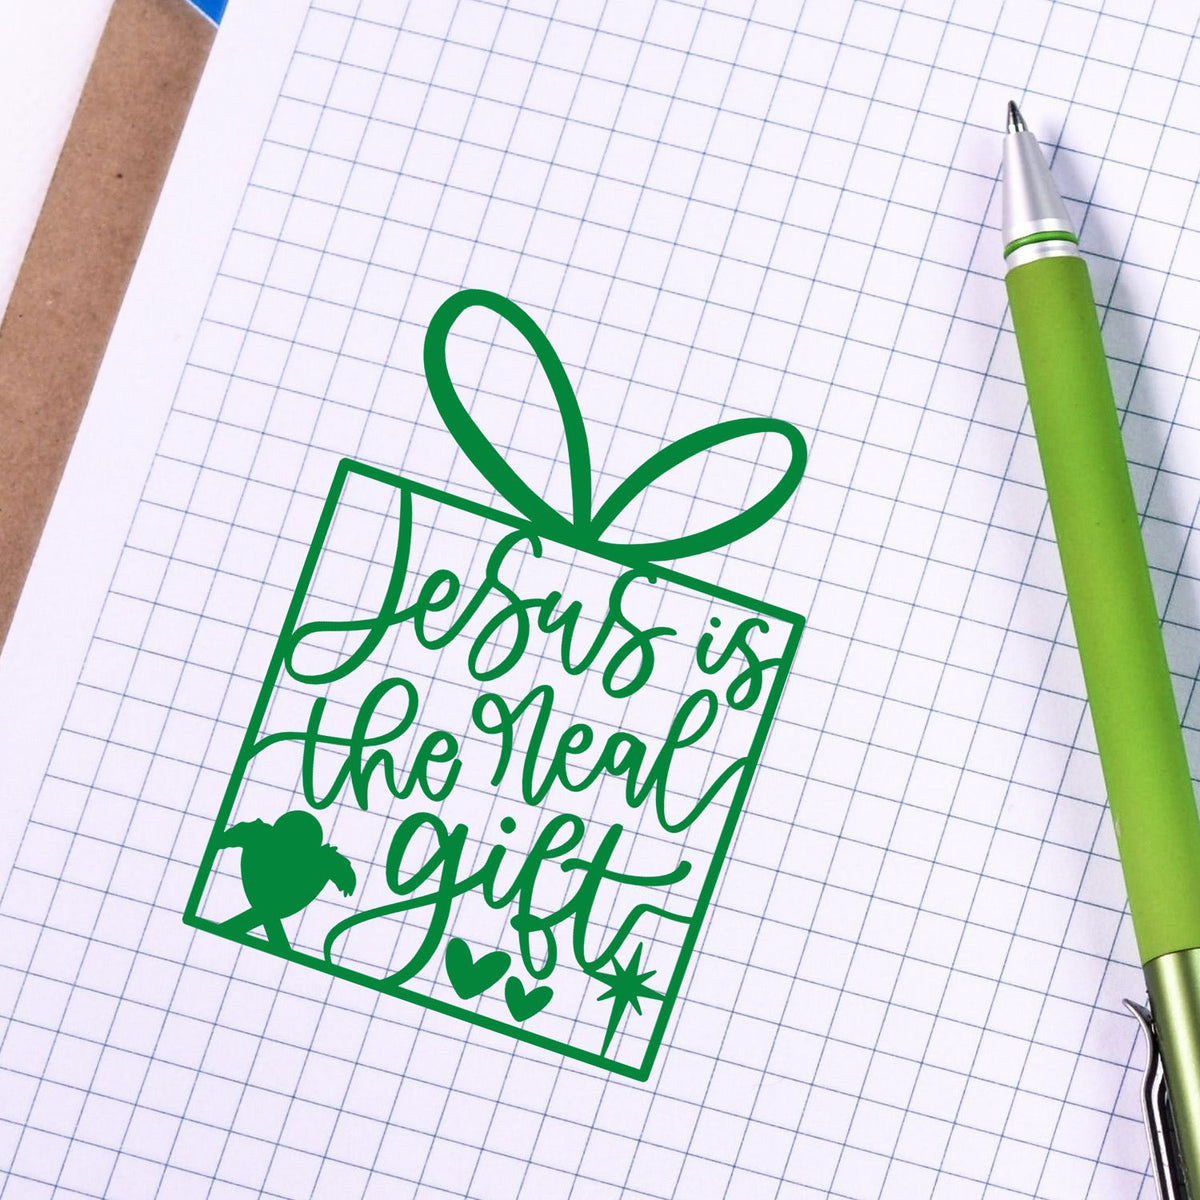 Jesus is
the real
gift